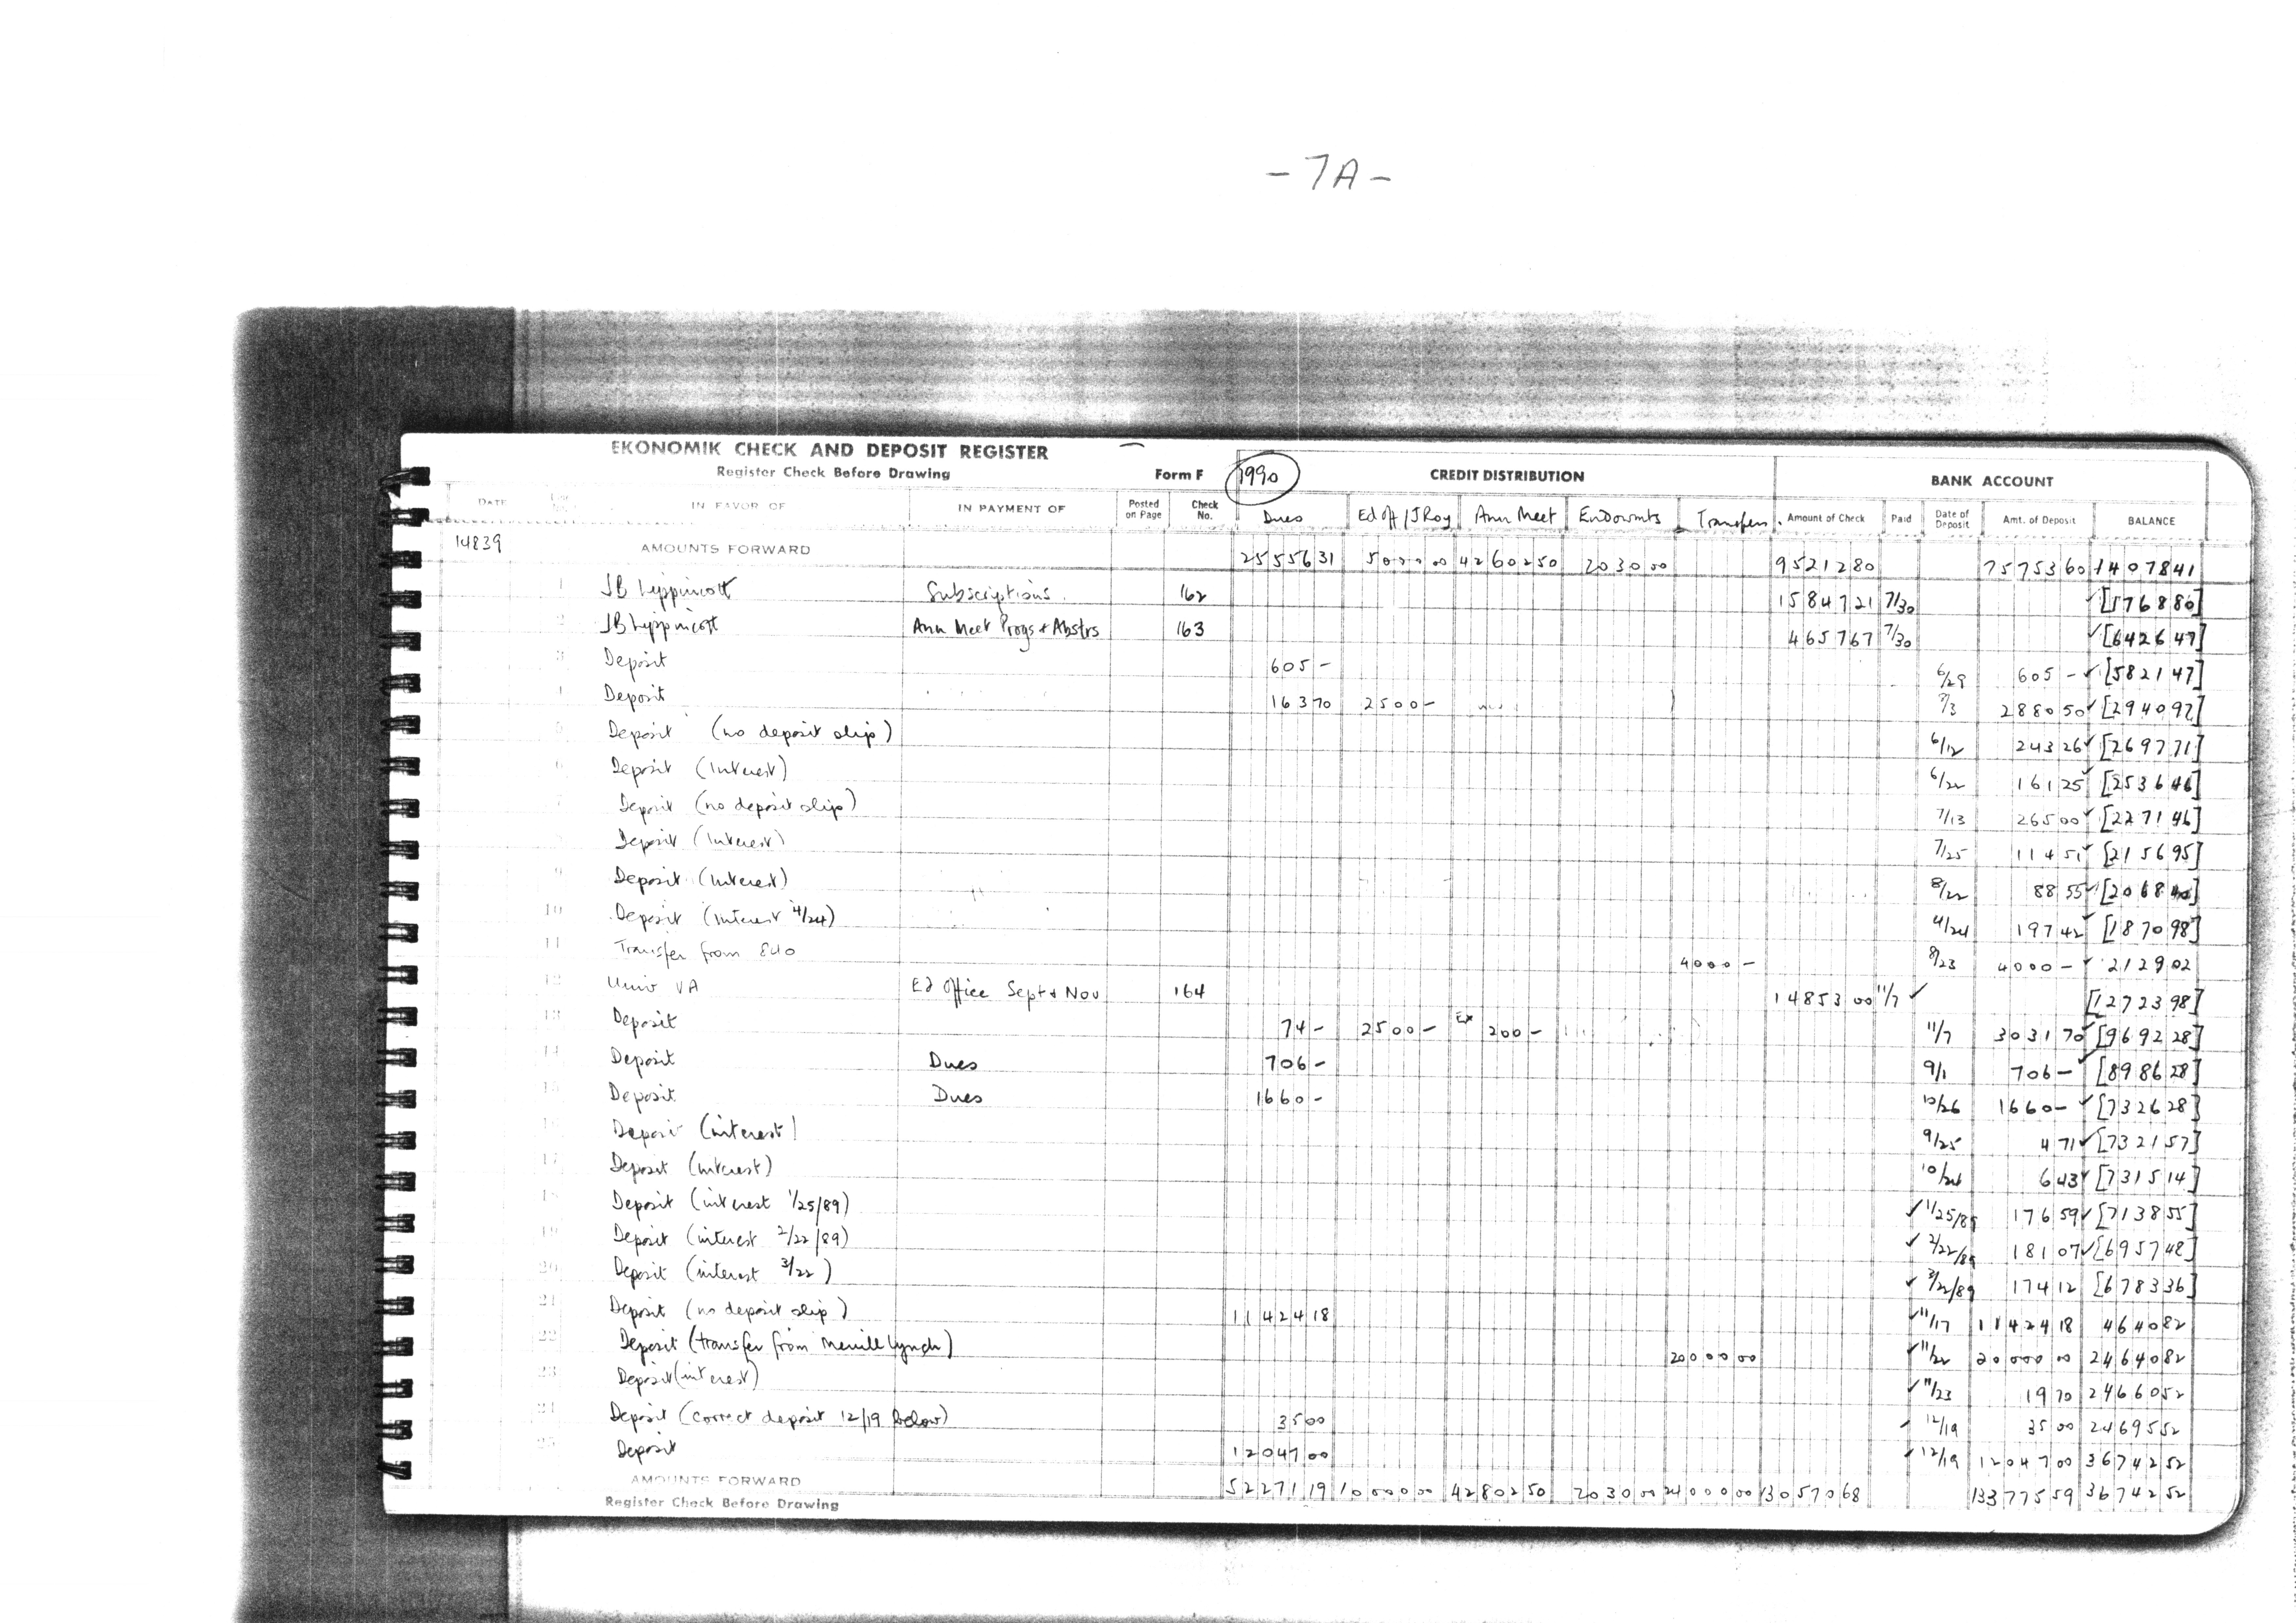 - 7A -
EKONOMIK CHECK AND DEPOSIT REGISTER
Register Check Before Drawing Form F 1990 CREDIT DISTRIBUTION BANK ACCOUNT
DATE IN FAVOR OF IN PAYMENT OF Posted on Page Check No. Dues Ed Off / J Roy Ann Meet Endowmts Transfers Amount of Check Paid Date of Deposit Amt. of Deposit BALANCE
14839 AMOUNTS FORWARD 25556 31 5000 00 42602 50 2030 00 95212 80 75753 60 14078 41
1 JB Lippincott Subscriptions 162 15847 21 7/30 [1768 80]
2 JB Lippincott Ann Meet Progs & Abstrs 163 4657 67 7/30 [6426 47]
3 Deposit 605 - 6/29 605 - [5821 47]
Deposit 163 70 2500 - 7/3 2880 50 [2940 97]
5 Deposit (no deposit slip) 6/12 243 26 [2697 71]
6 Deposit (Interest) 6/22 161 25 [2536 46]
7 Deposit (no deposit slip) 7/13 265 00 [2271 46]
Deposit (Interest) 7/25 114 51 [2156 95]
9 Deposit (Interest) 8/22 88 55 [2068 40]
10 Deposit (Interest 4/24) 4/24 197 42 [1870 98]
11 Transfer from 840 4000 - 8/23 4000 - 2129 02
12 Univ VA Ed Office Sept & Nov 164 14853 00 11/7 [12723 98]
13 Deposit 74 - 2500 - Ex 200 - 11/7 3031 70 [9692 28]
14 Deposit Dues 706 - 9/1 706 - [8986 28]
15 Deposit Dues 1660 - 10/26 1660 - [7326 28]
16 Deposit (interest) 9/25 4 71 [7321 57]
17 Deposit (interest) 10/24 6 43 [7315 14]
18 Deposit (interest 1/25/89) 1/25/89 176 59 [7138 55]
19 Deposit (interest 2/22/89) 2/22/89 181 07 [6957 48]
20 Deposit (interest 3/22) 3/22/89 174 12 [6783 36]
21 Deposit (no deposit slip) 11424 18 11/17 11424 18 4640 82
22 Deposit (transfer from Merrill Lynch) 20000 00 11/22 20000 00 24640 82
23 Deposit (interest) 11/23 19 70 24660 52
24 Deposit (correct deposit 12/19 below) 35 00 12/19 35 00 24695 52
25 Deposit 12047 00 12/19 12047 00 36742 52
AMOUNTS FORWARD 52271 19 10000 00 42802 50 2030 00 24000 00 130570 68 133775 59 36742 52
Register Check Before Drawing